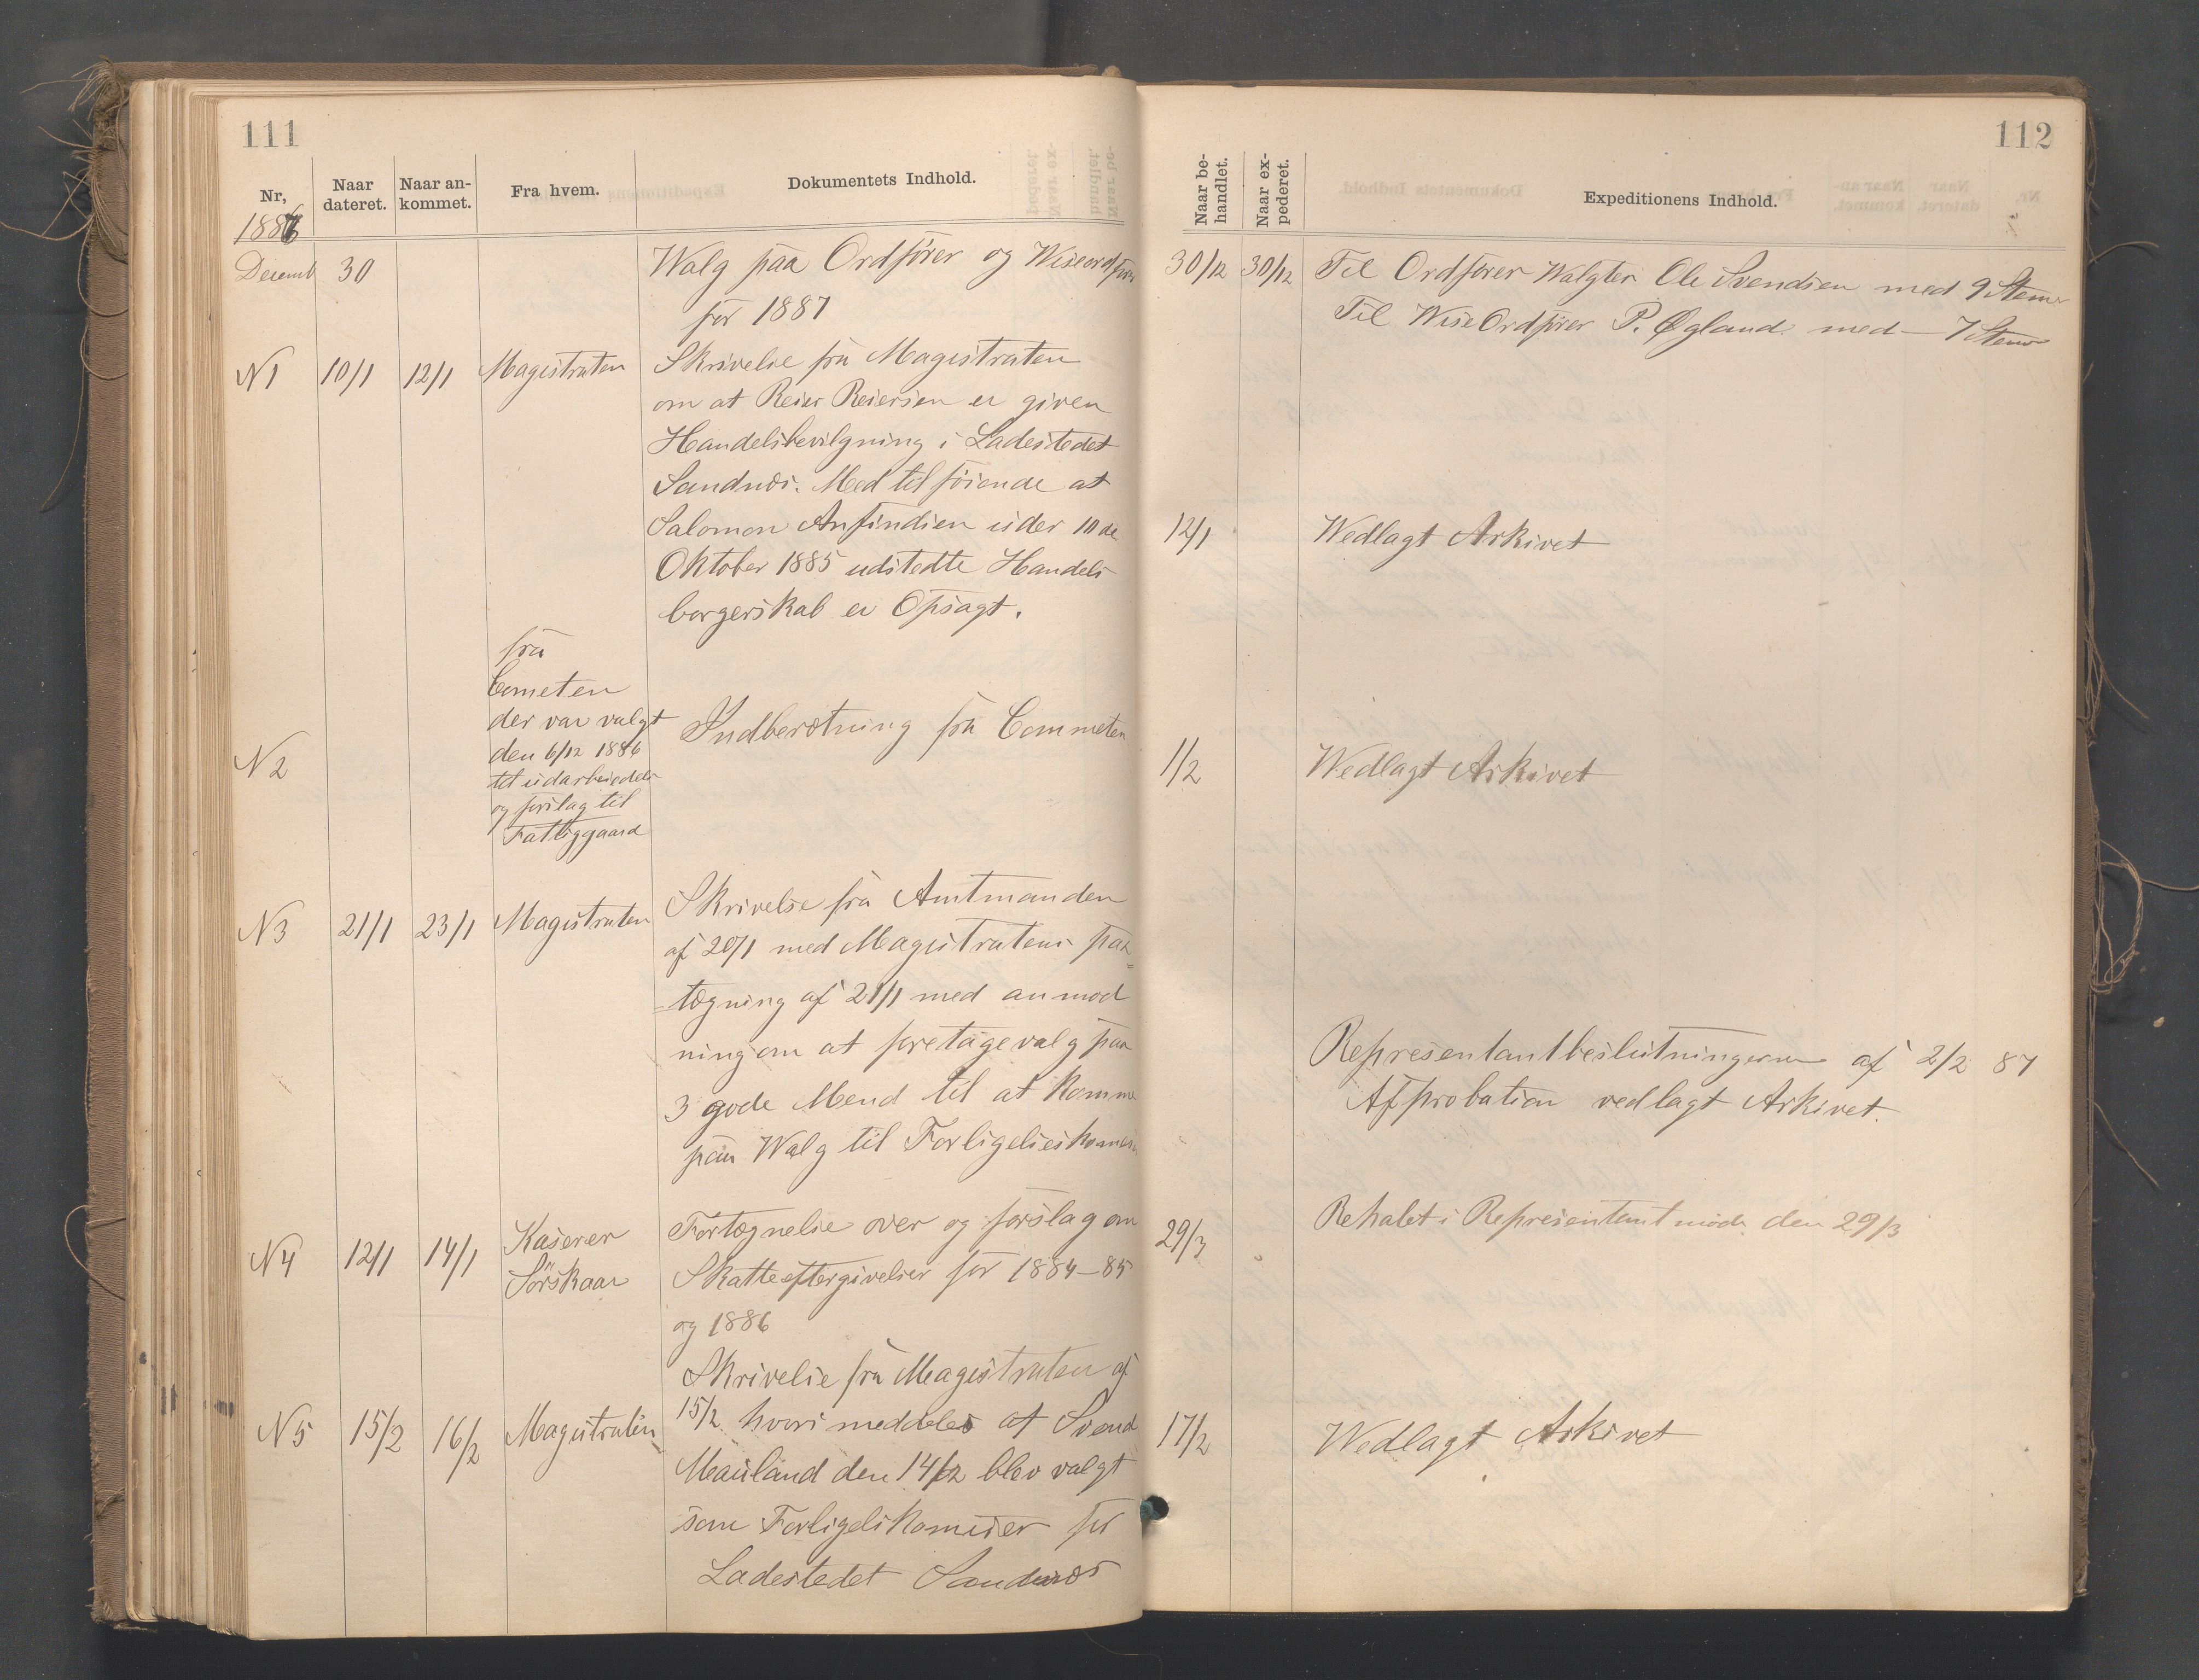 111
Nr,
Naar dateret.
Naar an-kommet.
Fra hvem.
Dokumentets Indhold.
1886
Decemb 30
Walg paa Ordförer og Wiseordförer
for 1887
N1 10/1 12/1 Magistraten
Skrivelse fra Magistraten
om at Reier Reiersen er given
Handelsbevilgning i Ladestedet
Sandnæs. Med tilföiende at
Salomon Anfindsen under 10de
Oktober 1885 udstedte Handels
borgerskab er Opsagt.
N2
fra
Cometen
der var valgt
den 6/12 1886
til udarbeidelse
og forslag til
Fattiggaard
Indberetning fra Commeten
N3 21/1 23/1 Magistraten
Skrivelse fra Amtmanden
af 20/1 med Magistratens paa=
=tegning af 21/1 med anmod
ning om at foretage valg paa
3 gode Mend til at komme
paa Walg til Forligelseskomesion
N4 12/1 14/1 Kaserer
Sörskaar
Fortegnelse over og forslag om
Skatteeftergivelser for 1884-85
og 1886
N5 15/2 16/2 Magistraten
Skrivelse fra Magistraten af
15/2 hvori meddeles at Svend
Mauland den 14/2 blev valgt
som Forligelskomiser for
Ladestedet Sandnæs
112
Naar be-handlet.
Naar ex-pederet.
Expeditionens Indhold.
30/12 30/12 Til Ordförer Walgtes Ole Svendsen med 9 Stemr
Til WiseOrdförer P. Øgland med - 7 Stemr
12/1 Wedlagt Arkivet
1/2 Wedlagt Arkivet
Representantbeslutningerne af 2/2 87
Afprobation vedlagt Arkivet.
29/3 Behalet i Representantmöde den 29/3
17/2 Wedlagt Arkivet